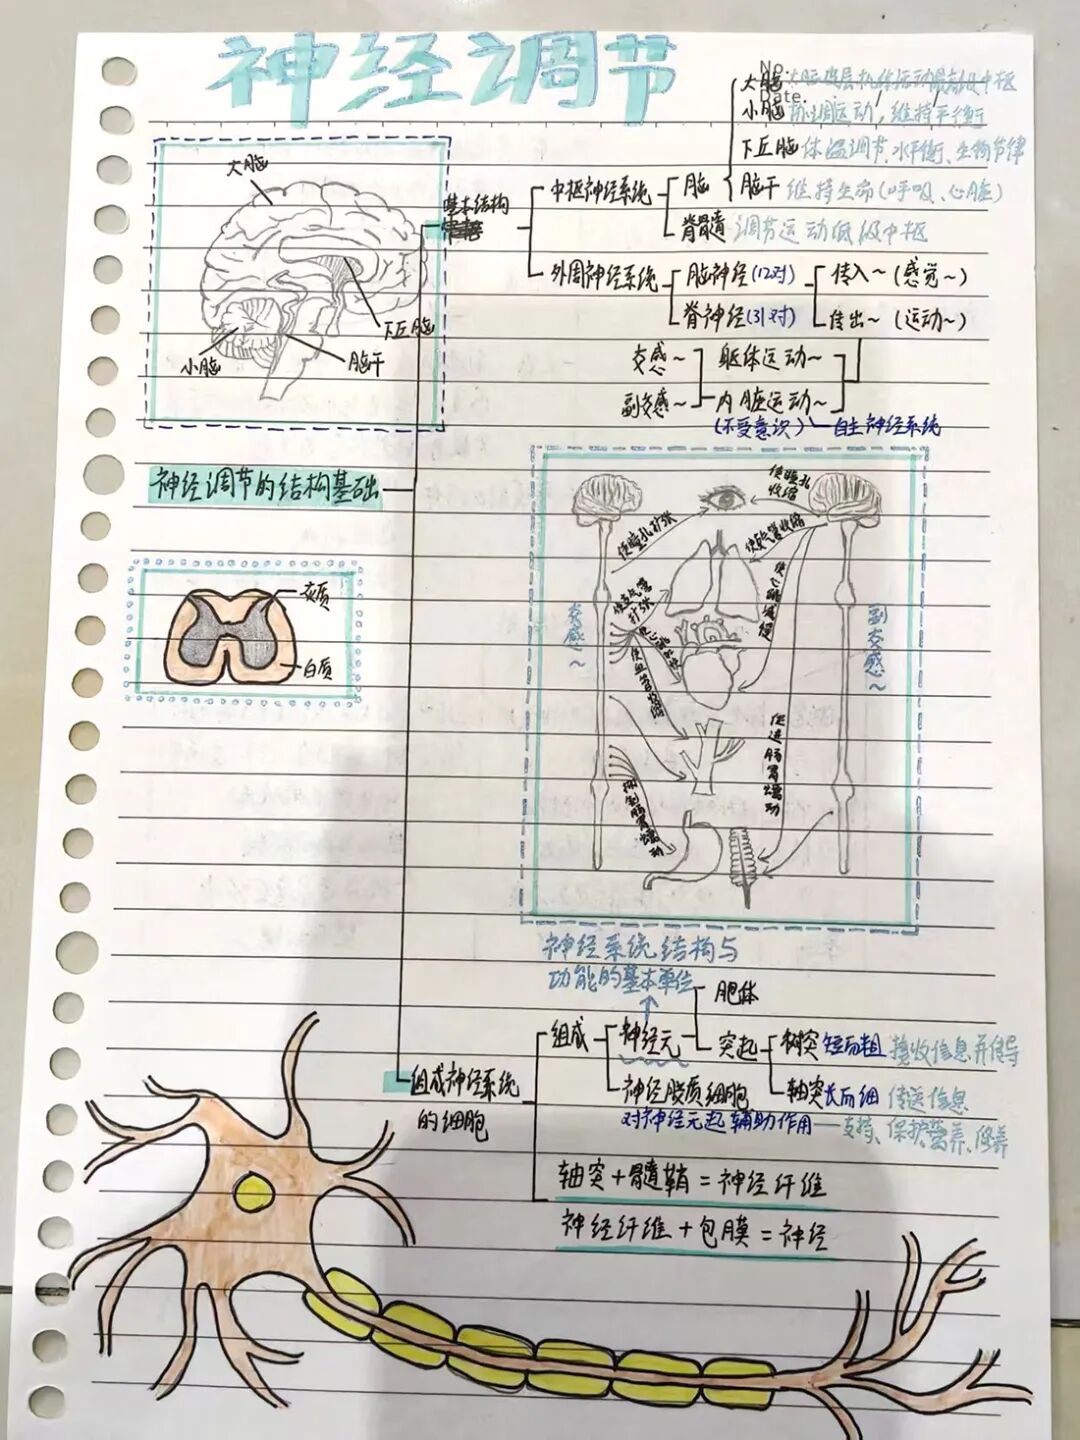 神经调节
No.
Date.
大脑 大脑皮层机体运动最高级中枢
小脑 协调运动，维持平衡
下丘脑 体温调节、水平衡、生物节律
脑干 维持生命(呼吸、心脏)
脊髓 调节运动低级中枢
基本结构
中枢神经系统
脑
外周神经系统
脑神经(12对)
传入~ (感觉~)
脊神经(31对)
传出~ (运动~)
交感~
躯体运动~
副交感~
内脏运动~
(不受意识)
自主神经系统
大脑
下丘脑
小脑
脑干
神经调节的结构基础
灰质
白质
使瞳孔收缩
使瞳孔扩张
使气管收缩
使支气管扩张
使心跳减慢
使心跳加快
使血管收缩
促进肠胃蠕动
抑制肠胃蠕动
交感~
副交感~
神经系统结构与
功能的基本单位
组成神经系统
的细胞
组成
神经元
胞体
突起
树突 短而粗 接收信息并传导
轴突 长而细 传送信息
神经胶质细胞
对神经元起辅助作用—支持、保护、营养、修养
轴突+髓鞘=神经纤维
神经纤维+包膜=神经